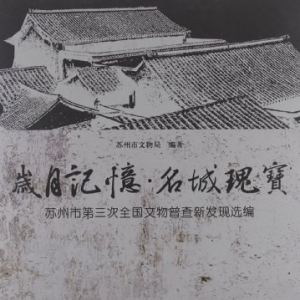 苏州市文物局 编著
歲月記憶·名城瑰寶
苏州市第三次全国文物普查新发现选编